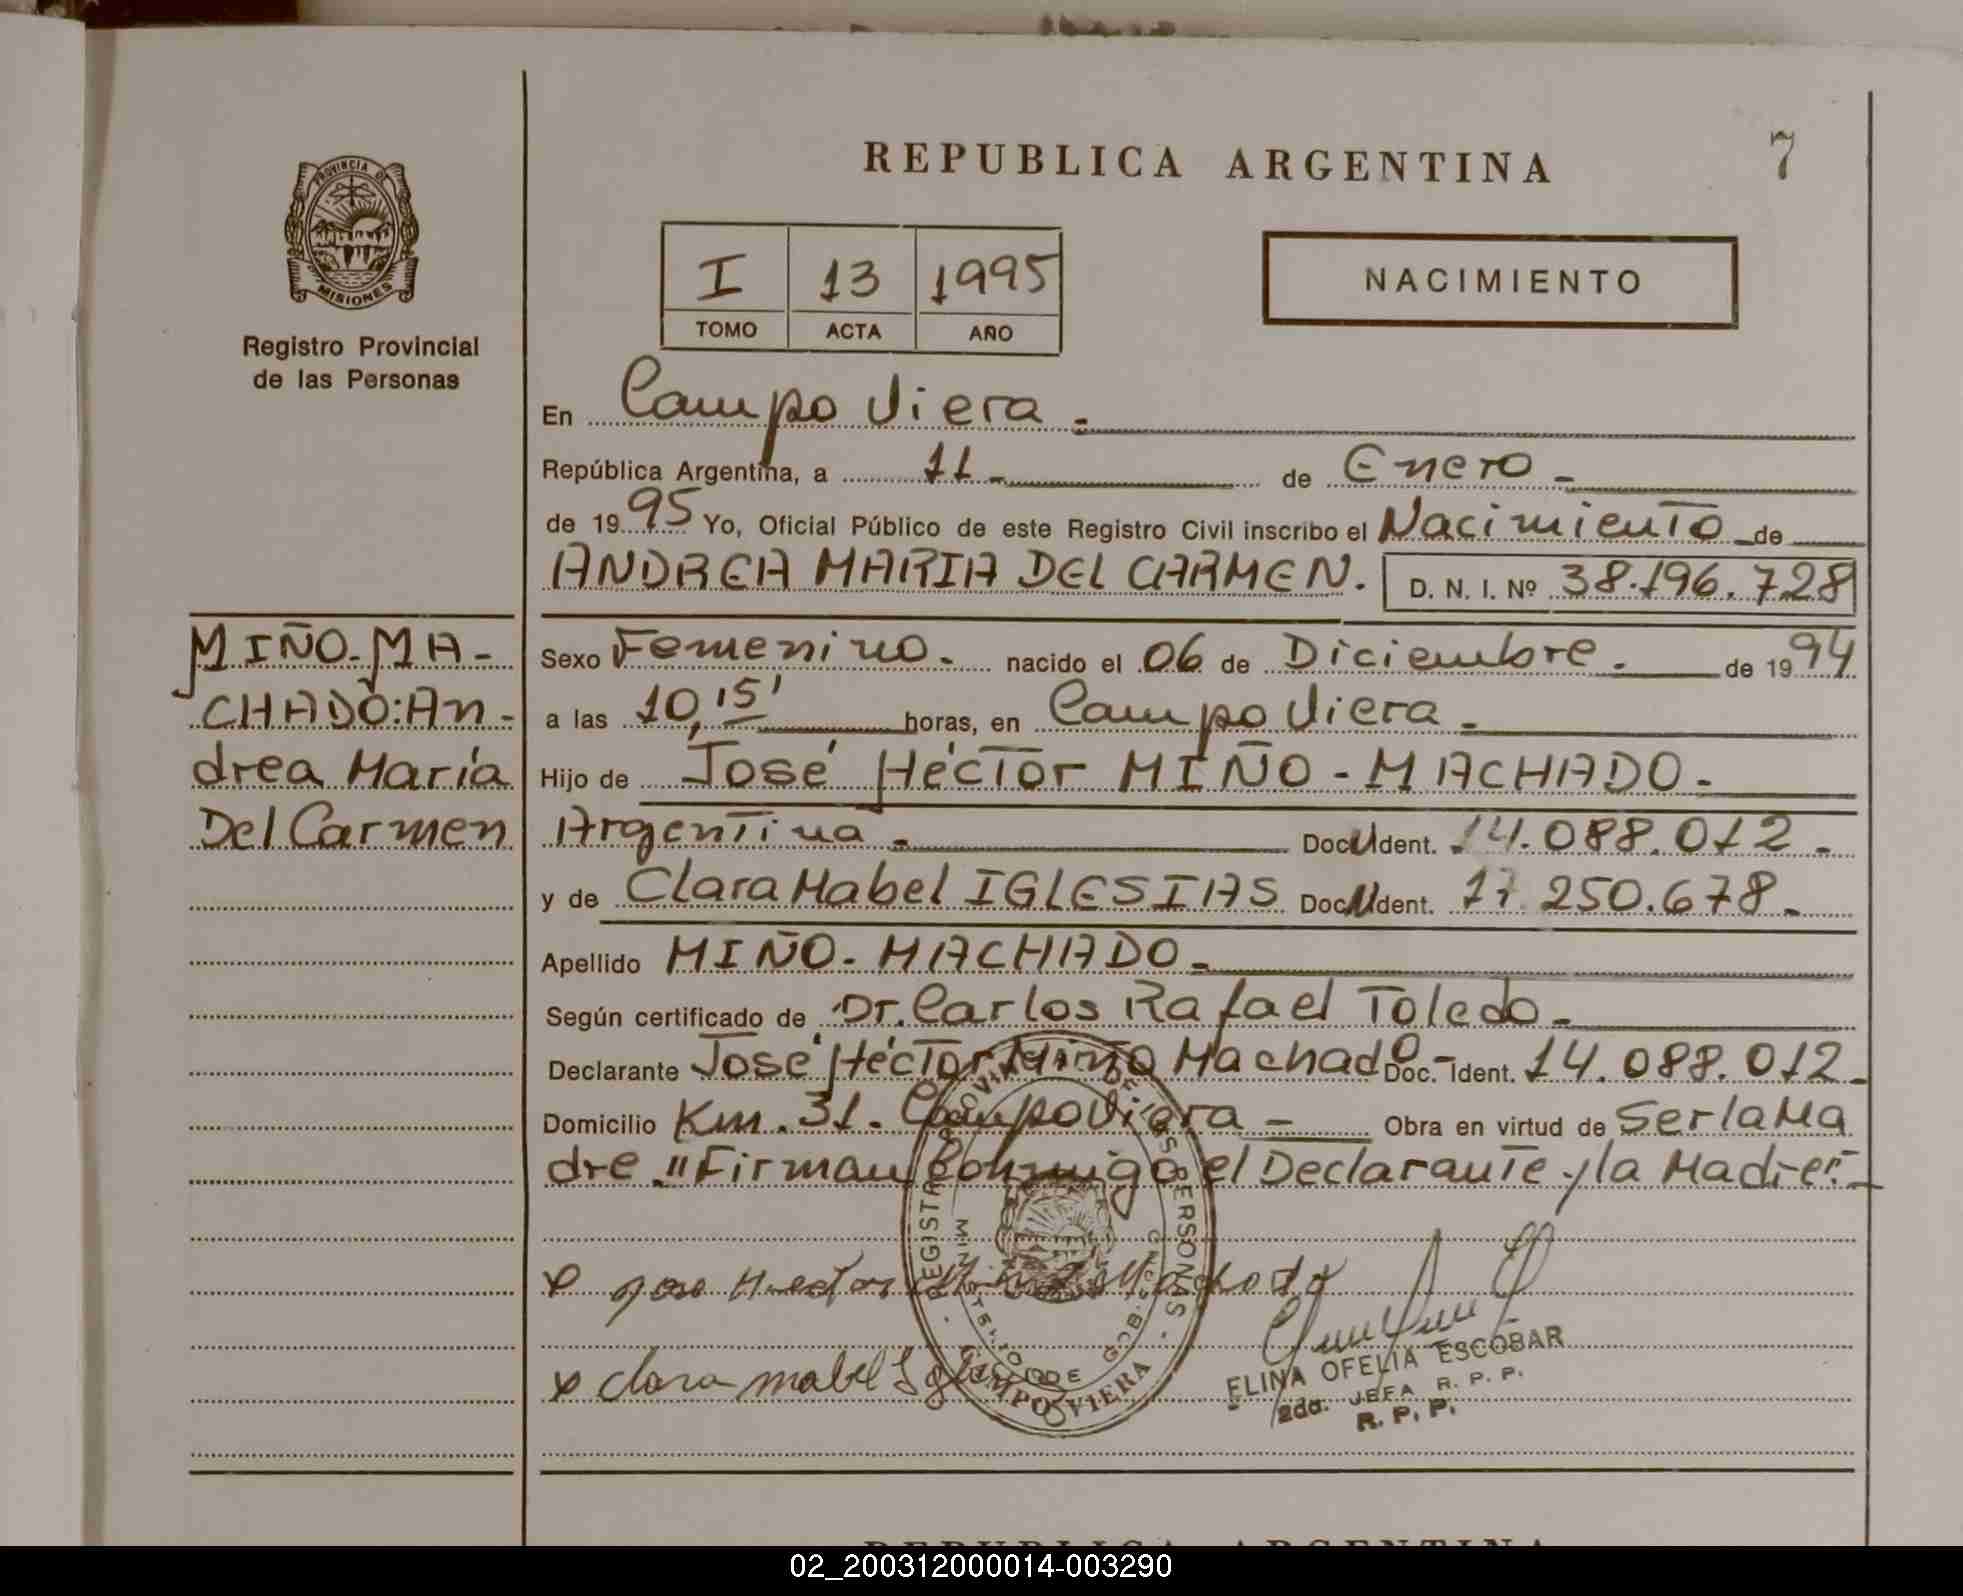 REPUBLICA ARGENTINA
7
PROVINCIA DE
MISIONES
Registro Provincial
de las Personas
I 13 1995
TOMO ACTA AÑO
NACIMIENTO
En Campo Viera.
República Argentina, a 11 de Enero
de 1995 Yo, Oficial Público de este Registro Civil inscribo el Nacimiento de
ANDREA MARIA DEL CARMEN. D. N. I. Nº 38.196.728
MIÑO-MA-
CHADO:An-
drea María
Del Carmen
Sexo Femenino. nacido el 06 de Diciembre. de 1994
a las 10,15' horas, en Campo Viera
Hijo de José Héctor MIÑO-MACHADO
Argentina Doc.U Ident. 14.088.012.
y de Clara Mabel IGLESIAS Doc. Ident. 17.250.678.
Apellido MIÑO-MACHADO
Según certificado de Dr. Carlos Rafael Toledo
Declarante José Héctor Miño Machado Doc. Ident. 14.088.012.
Domicilio Km. 31. Campo Viera Obra en virtud de Ser la Ma
dre "Firman Conmigo el Declarante y la Madre"
x jose Hector Miño Machado
x clara mabel Iglesias
ELINA OFELIA ESCOBAR
2da. JEFA R. P. P.
R. P. P.
CAMPO VIERA
REPUBLICA ARGENTINA
02_200312000014-003290